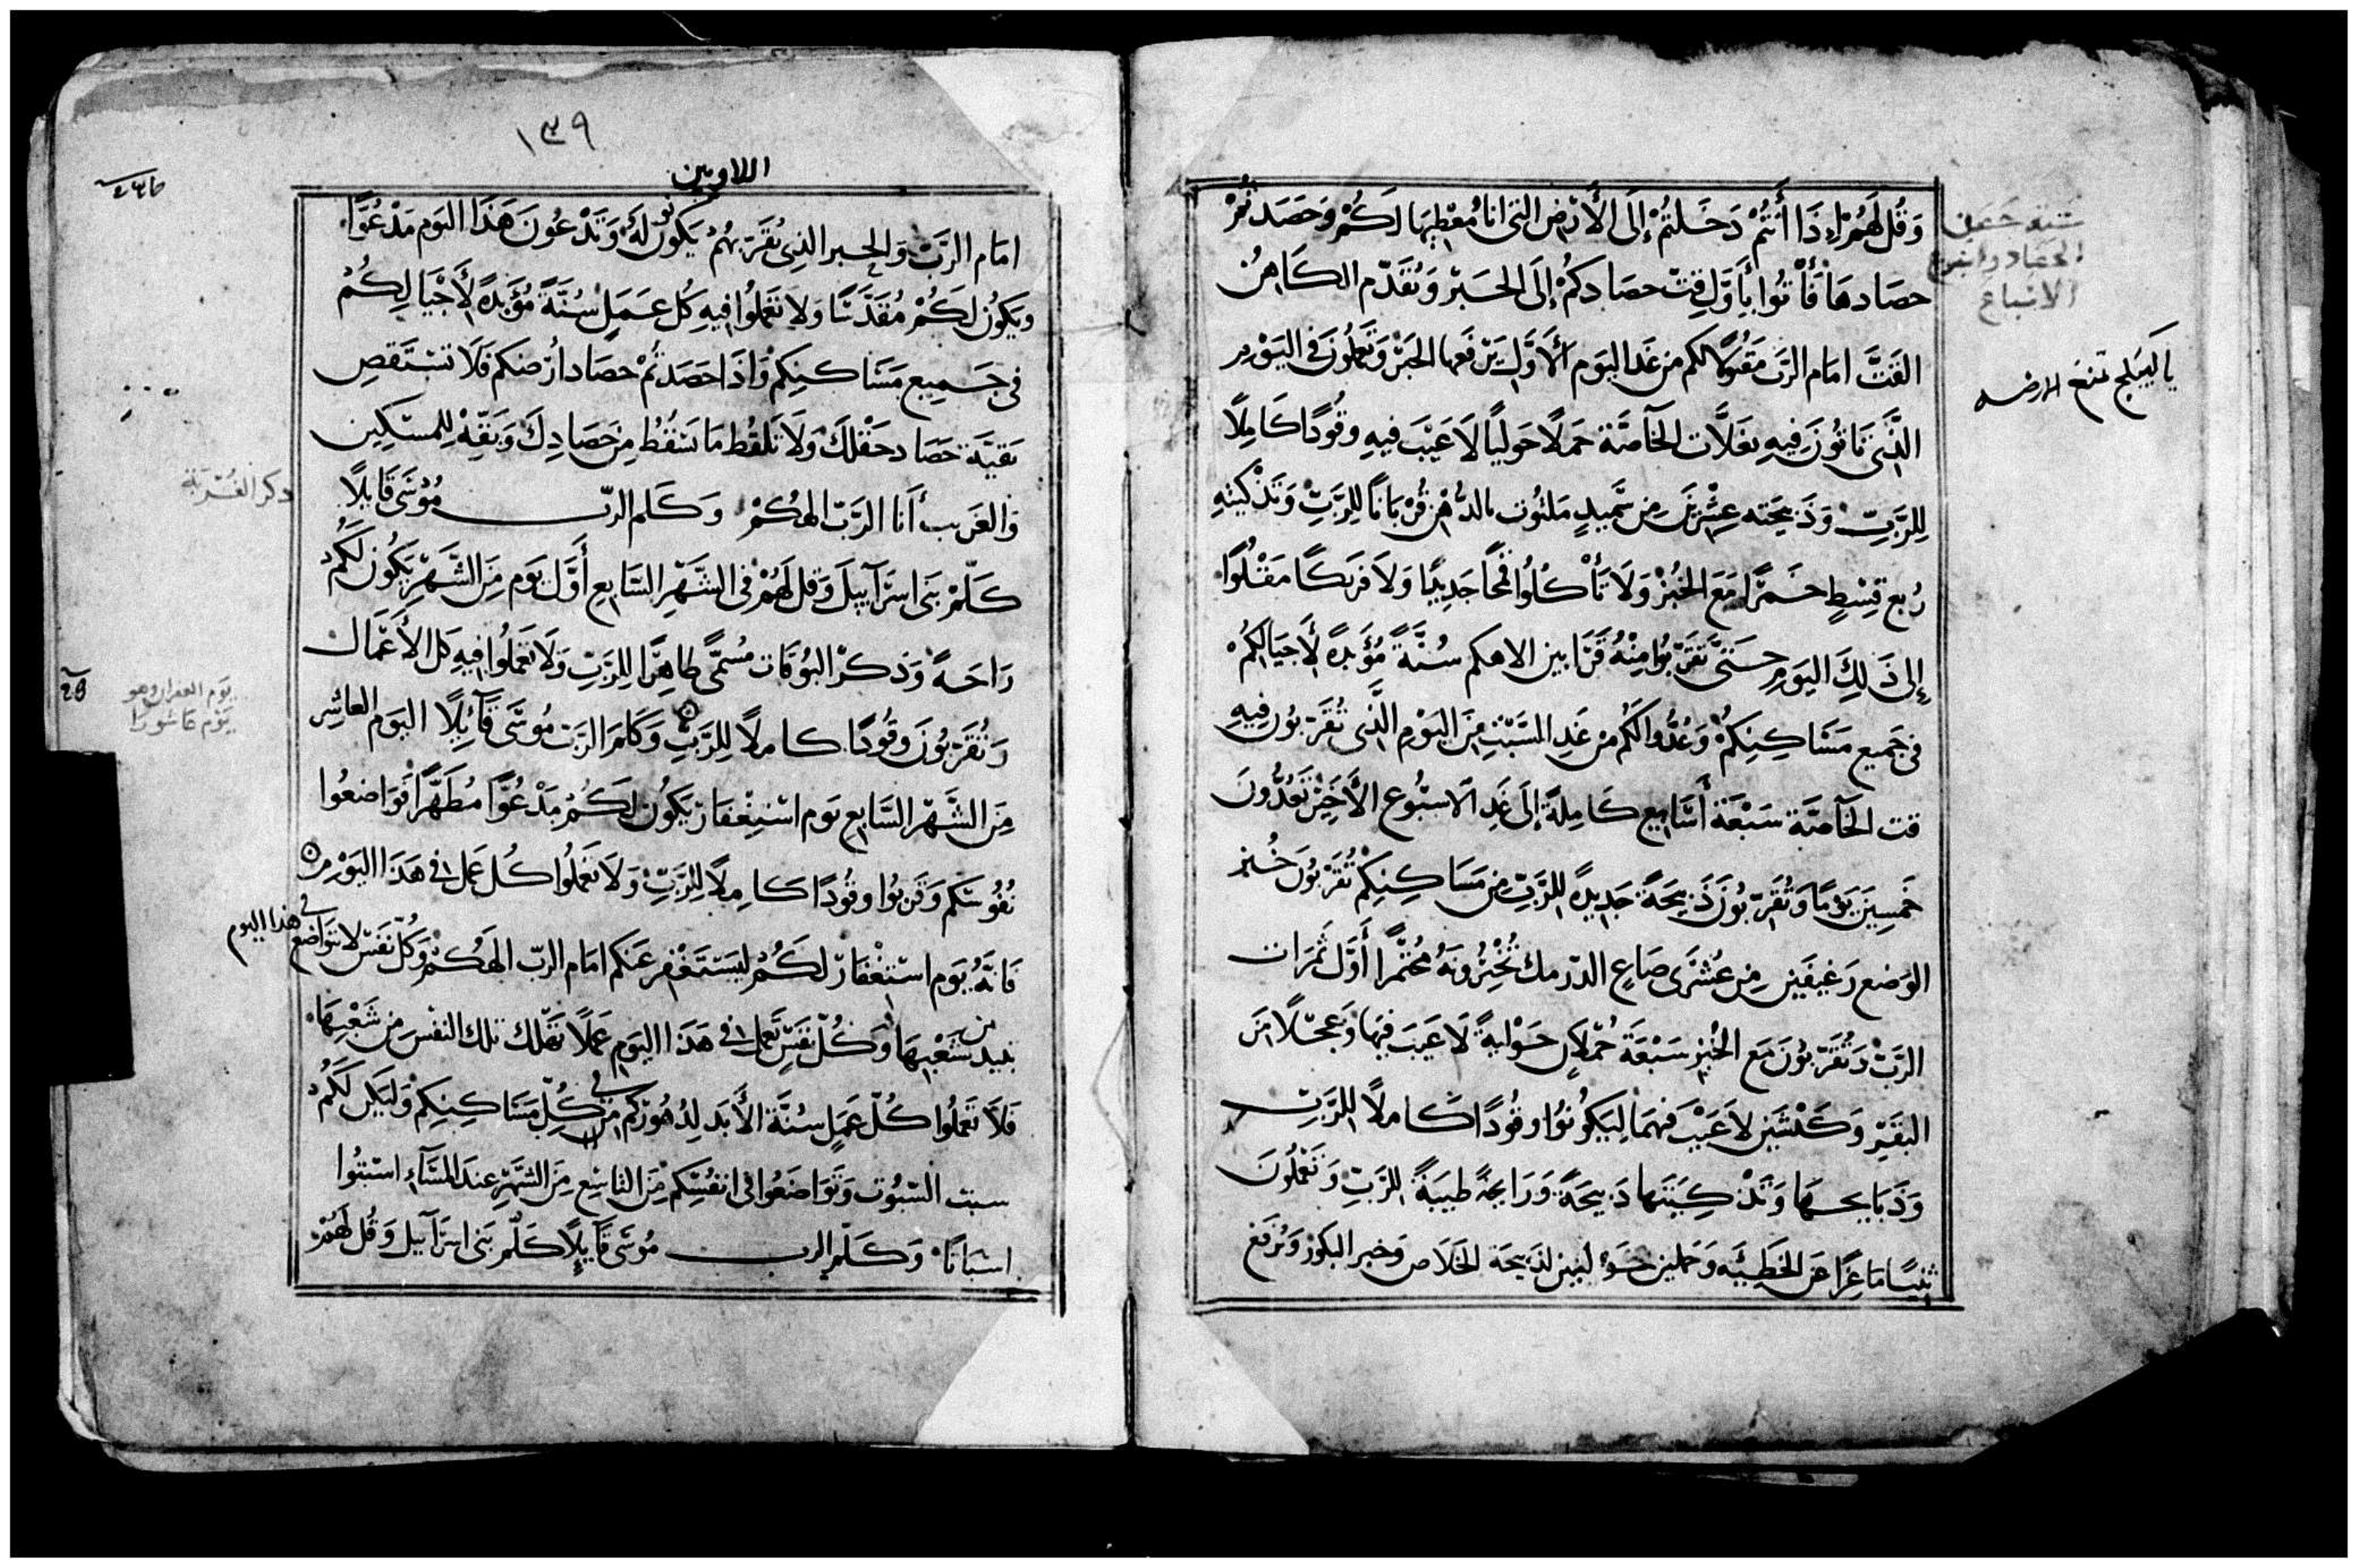 وَقُل لَهُمْ إِذَا أَنتُمْ دَخَلتُمْ إِلَى الأَرْضِ التي انا مُعْطِيهَا لَكُمْ وَحَصَدتُمْ
حصَادهَا فَأْتُوا بِأَوَّلِ قتّ حصَادِكُمْ إِلَى الحَبرْ وَيُقَدّم الكَاهِنُ
القَتَّ امَام الرَّب مَقبُولاً لكم من غَد اليَوم الأَوَّل يَرْفَعها الحَبرْ وَتَعمَلُونَ في اليَوْمِ
الَّذِي تَاتُونَ فِيهِ بغَلاَّت الخَآصَّة حَملاً حَوليًا لاَ عَيْبَ فيهِ وقُودًا كَامِلاً
لِلرَّبِّ وَذَبيحَته عِشْرَيْنِ مِن سَّمِيدٍ مَلتُوت بالدُّهْنِ قُرْبَانًا لِلرَّبِّ وَتَذْكيته
رُبع قِسْطٍ خَمرًا مَعَ الخُبْزْ وَلاَ تَأْكُلُوا قَمحًا جَدِيدًا وَلاَ فَريكًا مَقْلُوًا
إِلى ذَلِكَ اليَومِ حَتَّى تُقَرّبُوا مِنْهُ قَرَابين لالاهكم سُنَّةً مُؤَبدةً لأَجيَالِكُمْ
في جَميع مَسَاكِنِكُمْ وَعُدُّوا لكُم من غَدِ السَّبْتِ مِنَ اليَوْمِ الَّذِي تُقَرّبُون فِيهِ
قت الخَآصَّة سَبْعَة أَسَابيع كَامِلةً إِلَى غَدِ الاسبُوع الأَخِيْر تَعُدُّونَ
خَمسِينَ يَوْمًا وَتُقَرّبُونَ ذَبِيحَةً جَدِيدةً لِلرَّبّ مِن مَسَاكِنِكُمْ تُقَرّبُونَ خُبز
الوَضع رَغيفَين مِن عُشْرَى صَاعِ الدّرمك تُخْبِزُونَهُ مُختَمرًا أَوَّل ثَمَرَات
الرَّبّ وَتُقَرّبُونَ مَع الخُبْزِ سَبْعَة حُمْلاَنٍ حَوْليةً لاَ عَيبَ فِيهَا وَعِجلاً مِنَ
البَقَرِ وَكَبْشَينِ لاَ عَيْبَ فيهمَا لِيَكُونُوا وقُودًا كَاملاً لِلرَّبِّ
وَذَبَايحهَا وَتَذْكِيَتهَا ذَبيحَةً وَرَايحَةً طيبَةً لِلرَّبّ وَتَعْمَلُونَ
تَيسًا مَاعِزًا عَنِ الخَطِيّئَه وَحَملين حَوْليين لِذَبيحَة الخَلاَص وَخبز البكور وَيُرفَع
سُنة حمل
الحَصَاد واسْبُوع
الاسْبَاع
١٣٩
اللاويين
امَام الرَّبّ وَالحبر الذِي يُقَرّبهُمْ يَكُون لَهُ وَتَدْعُونَ هَذَا اليَوم مَدْعُوًّا
وَيَكُونُ لَكُمْ مُقَدَّسًا وَلاَ تَعْمَلُوا فِيهِ كُل عَمَلٍ سُنَّةً مُؤَبدةً لأَجْيَالِكُمْ
في جَمِيع مَسَاكِنِكُمْ وَاذَا حَصَدتُمْ حصَاد ارْضكم فَلاَ تَسْتَقصِ
بَقيَّة حَصَاد حَقْلكَ وَلاَ تَلقُط مَا سَقُطُ مِنْ حَصَادِكَ وَبَقّهْ لِلمسَكِين
وَالغَرِيب أَنا الرَّبّ الهكُمْ وَكَلم الرّبّ مُوُسَى قَايلاً
كَلّمْ بَني اسرَآييلَ وَقل لَهُمْ في الشَّهْرِ السَّابعِ أَوَّل يَوم مِنَ الشَّهْرِ يَكُون لَكُمْ
رَاحَةً وَذكرْ البُوقَات مُسَمَّى طَاهِرًا لِلرَّبّ وَلاَ تَعمَلُوا فيهِ كل الأَعْمَال
وَتُقَرّبُونَ وقُودًا كاملاً لِلرَّبّ وَكَلمَ الرَّبّ مُوسَى قَآئِلاً اليَوم العاشِر
مِنَ الشَّهْر السَّابع يَوم اسْتِغْفَار يَكُون لَكُمْ مَدْعُوًّا مُطَهَّرًا فَوَاضعُوا
نُفُوسَكم وَقَربُوا وقُودًا كَامِلاً لِلرَّبّ وَلاَ تَعْمَلُوا كُل عَمل في هَذَا اليَوْمِ
فَانَّهُ يَوم اسْتِغْفَار لكُمْ ليَسْتَغْفِر عَنكم امَام الرّبّ الهكُمْ وَكُلّ نَفْس لا تَواضع في هذا اليوم
تبيد من شَعْبهَا وَكُلّ نَفْسٍ تَعمَل في هَذَا اليَوم عَملاً تَهْلك تلك النفْسَ مِن شَعْبِهَا
فَلاَ تَعْمَلُوا كُلّ عَمَلٍ سُنَّة الأَبَد لِدُهُورِكُم في كُلّ مَسَاكِنِكُمْ وَليَكن لَكُمْ
سبت السّبُوت وَتَوَاضَعُوا في انفُسَكُم مِنَ التاسع مِنَ الشَّهْرِ عندَ المَسَآء اسْبتُوا
اسبَاتًا وَكَلّم الرب مُوسَى قَآيلاً كَلّم بَني اسرَآييل وَقُل لَهُمْ
يَوم الغفران وهو
يَوْم عَاشُورَا